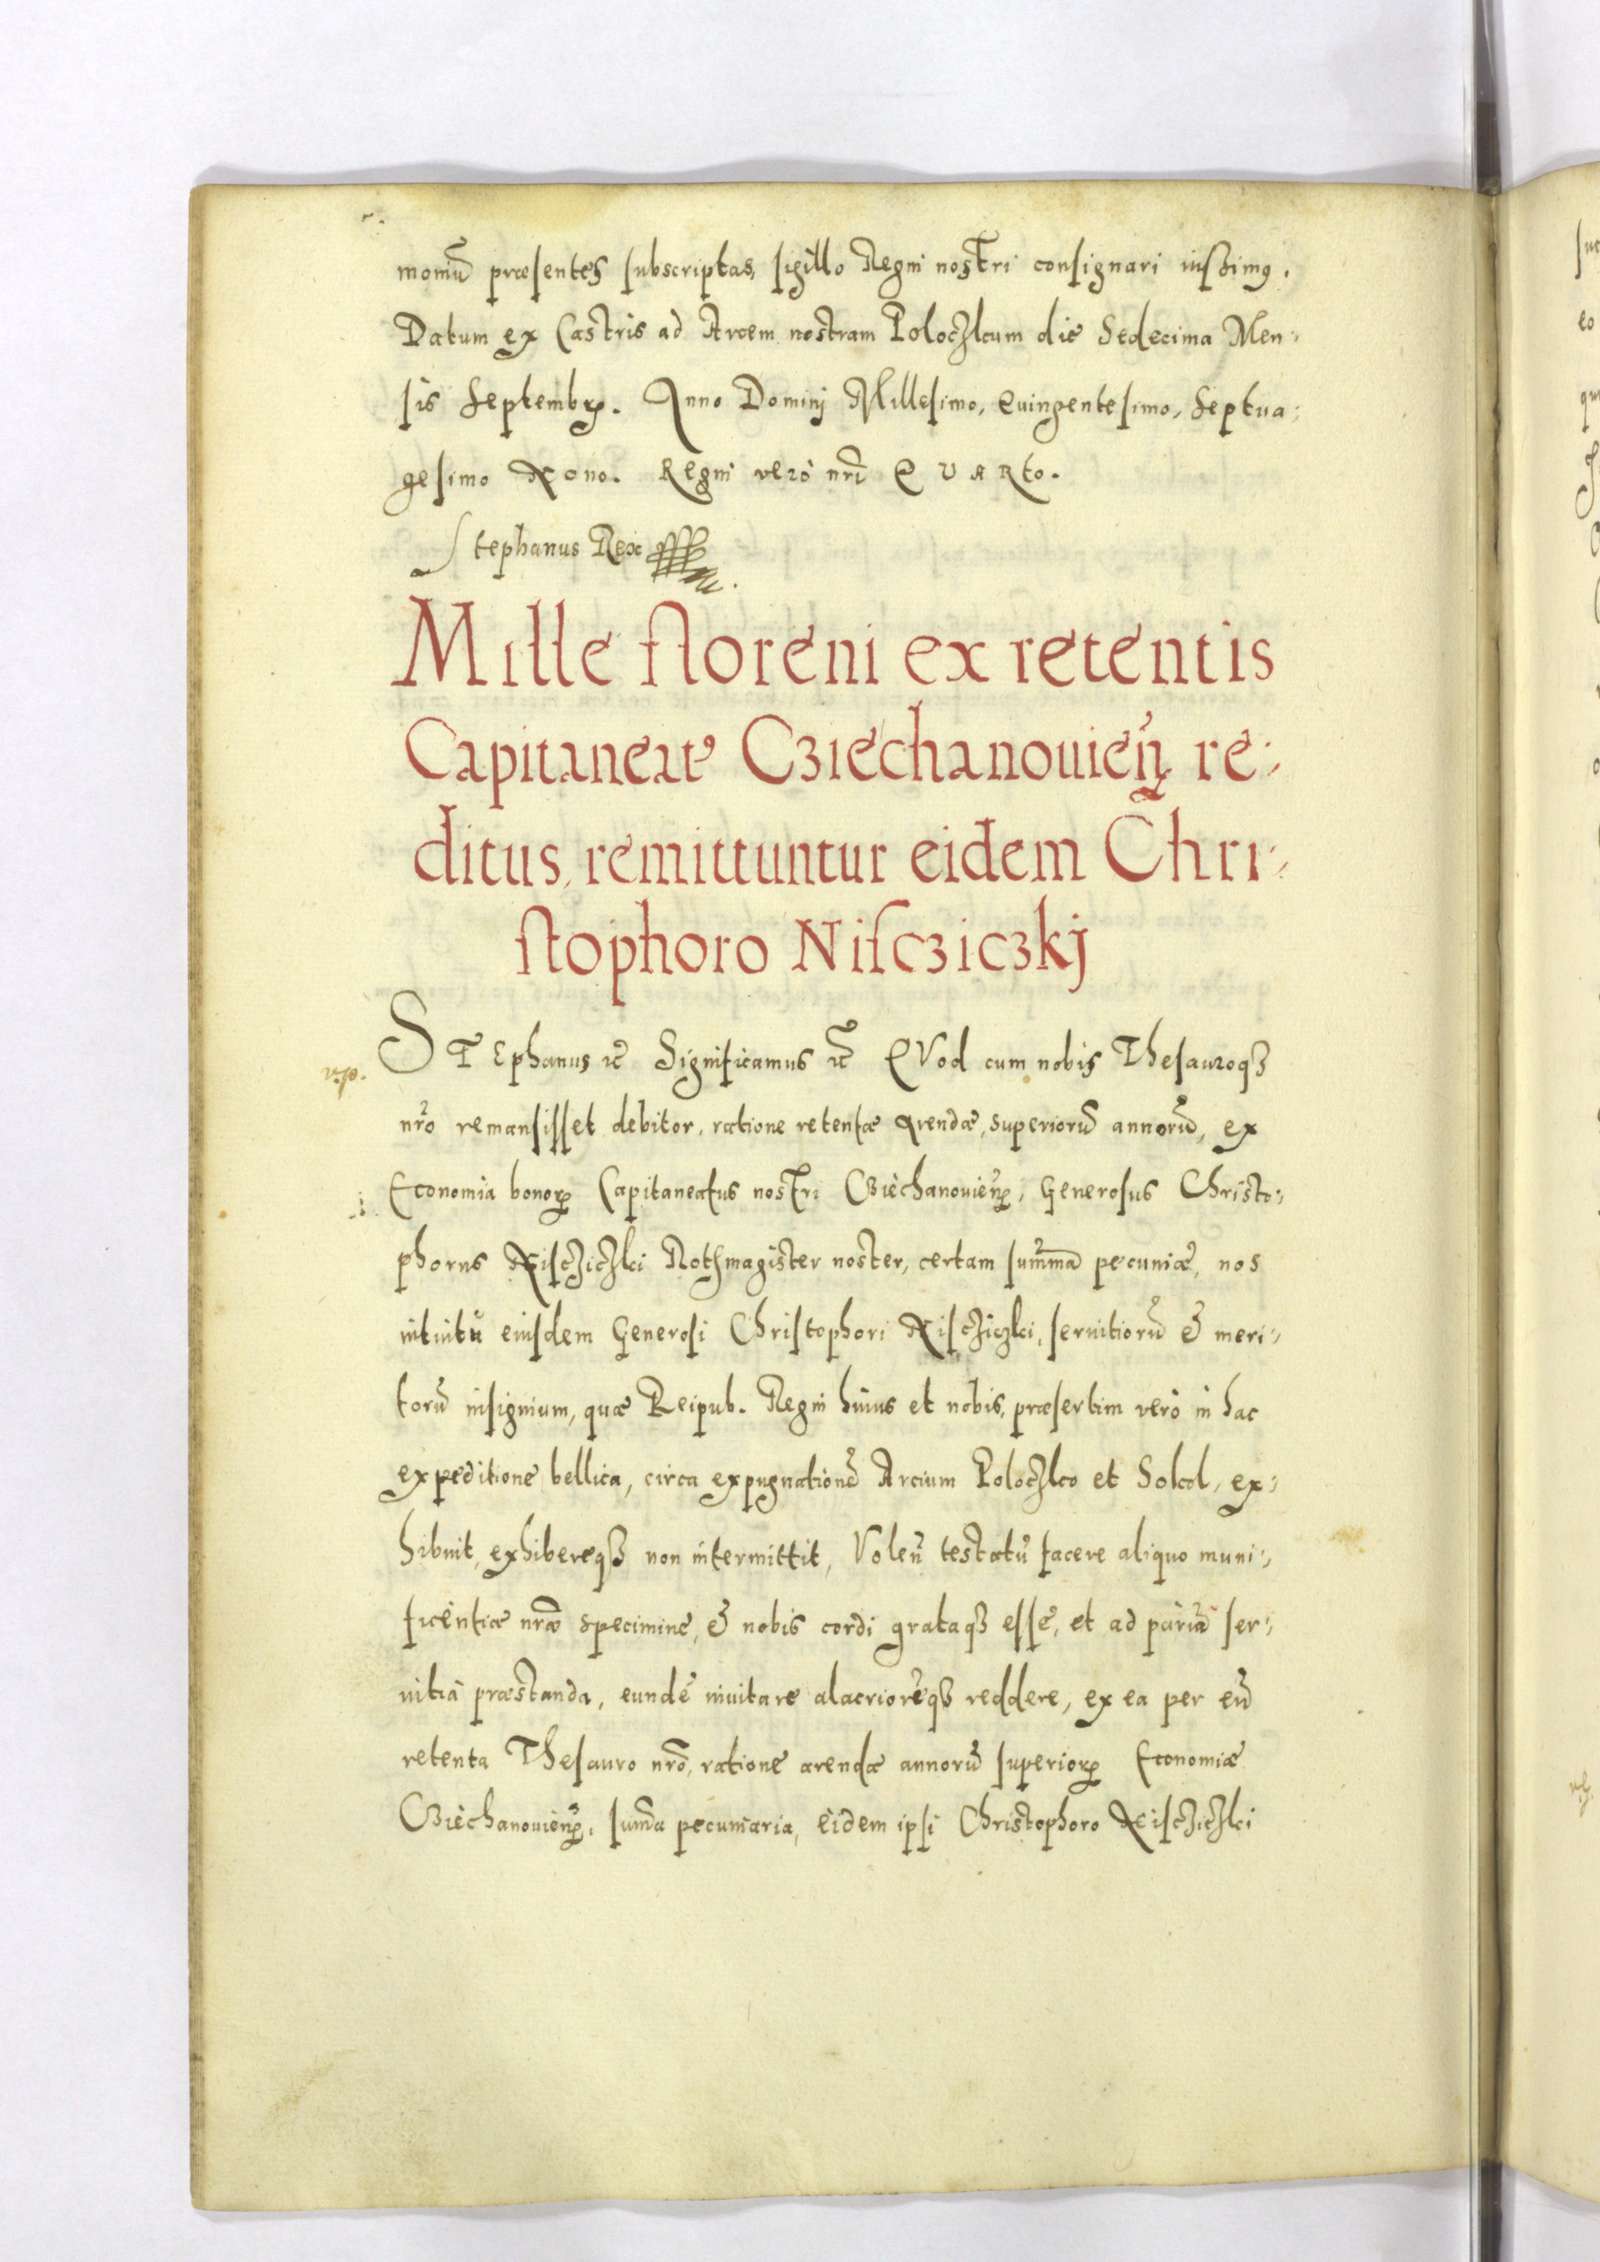 moniū præsentes subscriptas, sigillo Regni nostri consignari iussimꝰ.
Datum ex Castris ad Arcem nostram Poloczkum die Sedecima Men-
sis Septembrꝭ. Anno Dominj Millesimo, Quingentesimo, Septua-
gesimo Nono. Regni verò nrī QUARto.
Stephanus Rex
Mille floreni ex retentis
Capitaneatꝰ Cziechanouieñ. re-
ditus, remittuntur eidem Chri-
stophoro Niscziczkj
v.p.
STEphanus ꝛc̄ Significamus ꝛc̄ QVod cum nobis Thesauroqȝ
nr̄o remansisset debitor, ratione retentæ arendæ, superiorū annorū, ex
Economia bonorꝝ Capitaneatus nostri Cziechanouieñ, Generosus Christo-
phorus Niscziczki Rothmagister noster, certam sum̄ma pecuniæ, nos
intuitū eiusdem Generosi Christophori Niscziczki, seruitiorū & meri-
torū insignium, quæ Reipub. Regni huius et nobis, præsertim verò in hac
expeditione bellica, circa expugnationē Arcium Poloczko et Sokol, ex-
hibuit, exhibereqȝ non intermittit, Voleñ testatū facere aliquo muni-
ficentiæ nr̄æ specimine, & nobis cordi grataqȝ esse, et ad paria ser-
uitia præstanda, eundē inuitare alacriorēqȝ reddere, ex ea per eū
retenta Thesauro nr̄o, ratione arendæ annorū superiorꝝ Economiæ
Cziechanouieñ, sum̄a pecuniaria, eidem ipsi Christophoro Nisczicżki